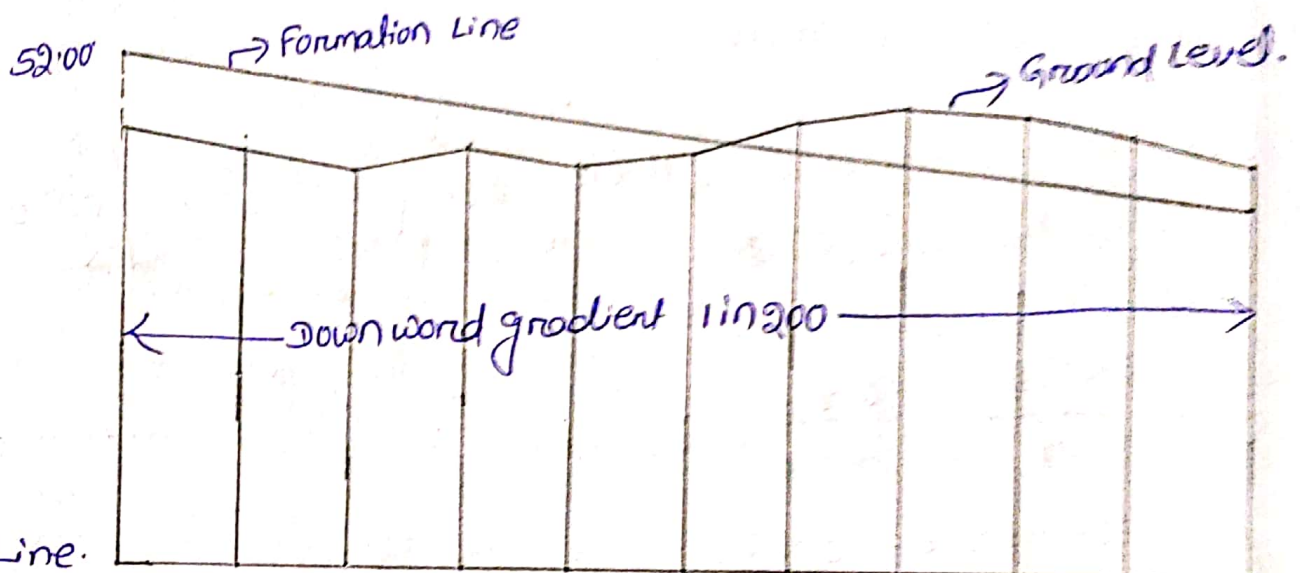 52.00
Formation Line
Ground Level.
Downword gradient 1 in 200
Line.